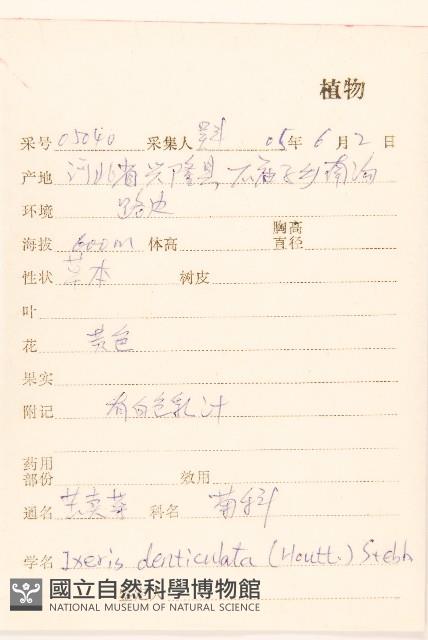 植物
采号 05040 采集人 05年 6月 2日
产地 河北省兴隆县, 石庙子乡南沟
环境 路边
海拔 600m 体高 胸高直径
性状 草本 树皮
叶
花 黄色
果实
附记 有白色乳汁
药用部份 效用
通名 苦荬菜 科名 菊科
学名 Ixeris denticulata (Houtt.) Stebb
國立自然科學博物館
NATIONAL MUSEUM OF NATURAL SCIENCE